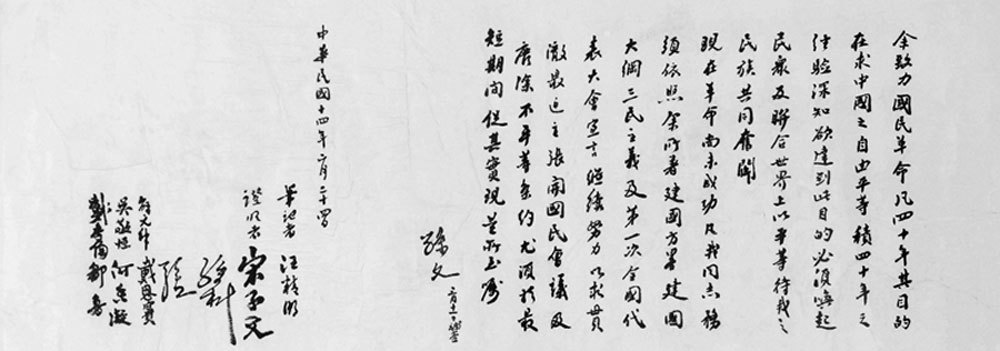 余致力國民革命凡四十年其目的
在求中國之自由平等積四十年之
經驗深知欲達到此目的必須喚起
民衆及聯合世界上以平等待我之
民族共同奮鬬
現在革命尚未成功凡我同志務
須依照余所著建國方畧建國
大綱三民主義及第一次全國代
表大會宣言繼續努力以求貫
澈最近主張開國民會議及
廢除不平等条約尤須於最
短期間促其實現是所至囑
孫文
中華民國十四年二月二十四日
筆記者 汪精衛
證明者 宋子文
孫科
戴恩賽
吳敬恒 何香凝
鄒魯